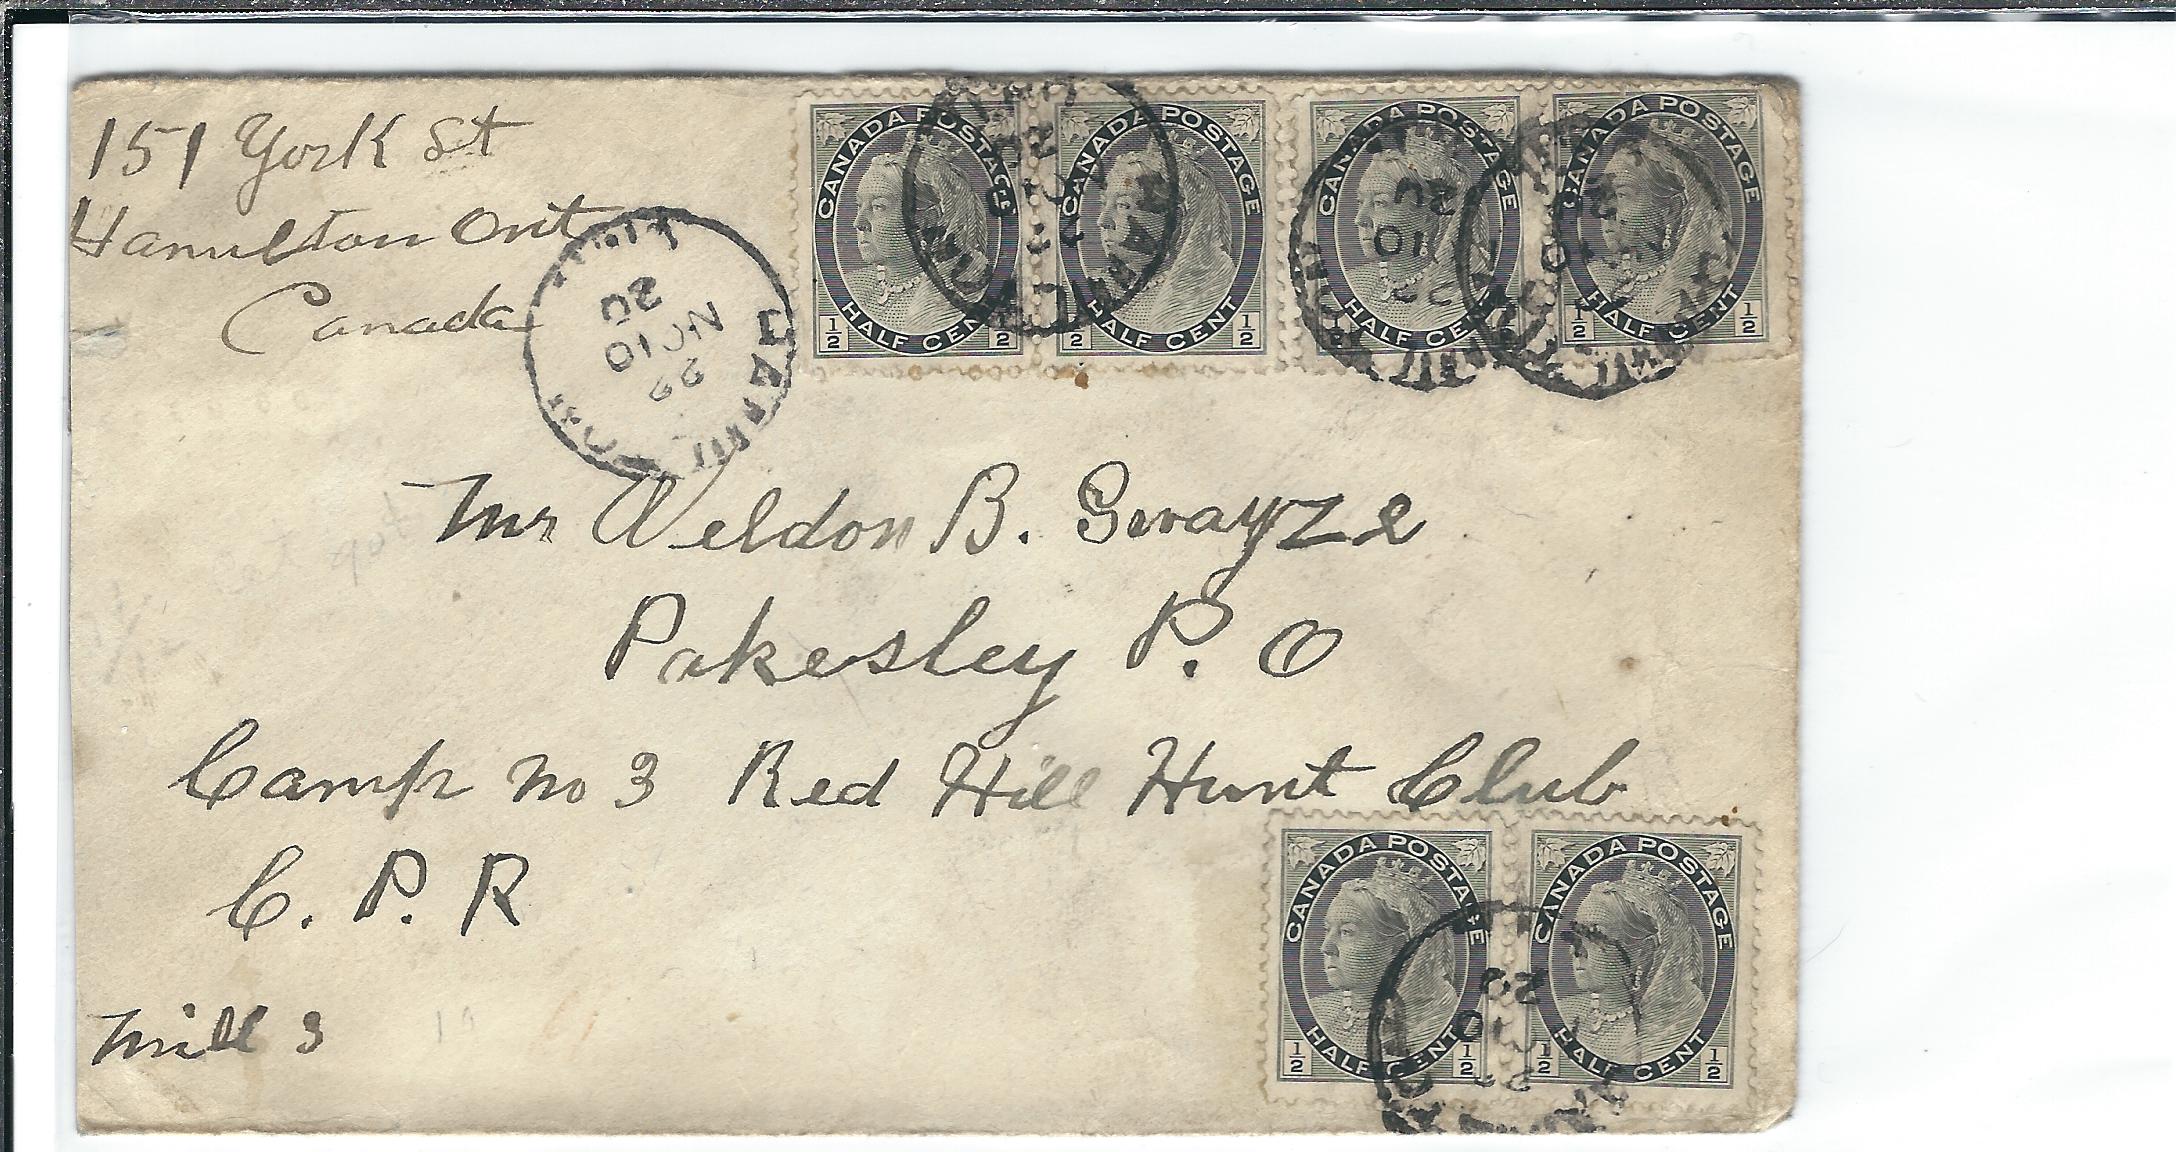 151 York St
Hamilton Ont
Canada
CANADA POSTAGE HALF CENT 1/2 1/2
CANADA POSTAGE HALF CENT 1/2 1/2
CANADA POSTAGE HALF CENT 1/2
CANADA POSTAGE HALF CENT 1/2 1/2
20
NO 10
22
Mr Weldon B. Swayze
Pakesley P. O
Camp No 3 Red Hill Hunt Club
C. P. R
Mill 3
CANADA POSTAGE HALF CENT 1/2 1/2
CANADA POSTAGE HALF CENT 1/2 1/2